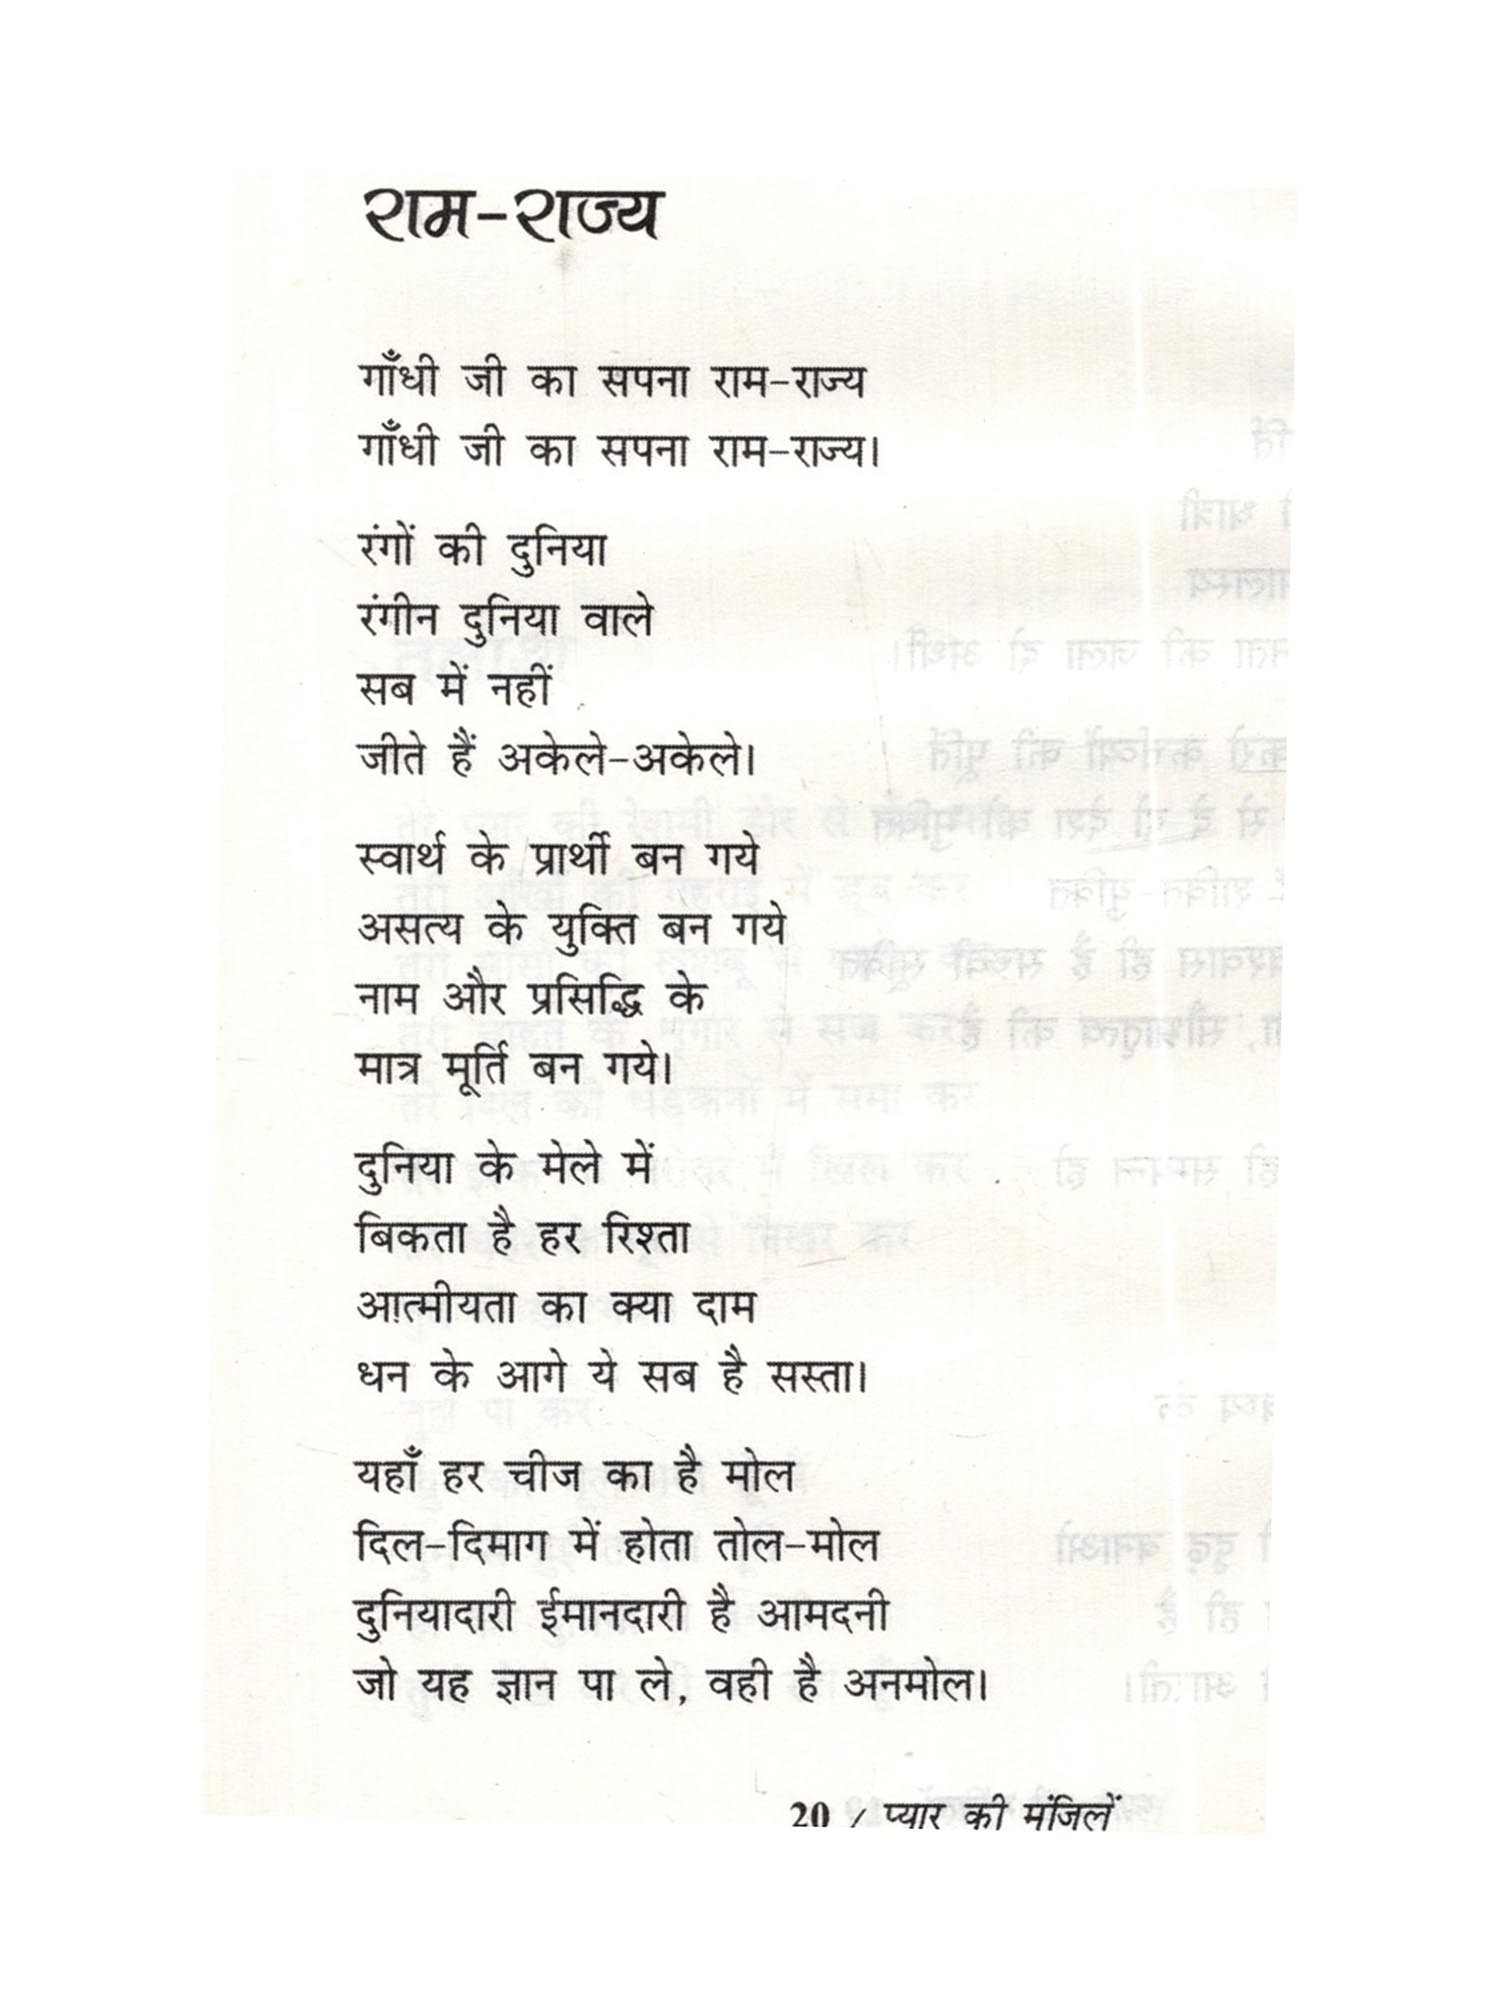 राम-राज्य
गाँधी जी का सपना राम-राज्य
गाँधी जी का सपना राम-राज्य।
रंगों की दुनिया
रंगीन दुनिया वाले
सब में नहीं
जीते हैं अकेले-अकेले।
स्वार्थ के प्रार्थी बन गये
असत्य के युक्ति बन गये
नाम और प्रसिद्धि के
मात्र मूर्ति बन गये।
दुनिया के मेले में
बिकता है हर रिश्ता
आत्मीयता का क्या दाम
धन के आगे ये सब है सस्ता।
यहाँ हर चीज का है मोल
दिल-दिमाग में होता तोल-मोल
दुनियादारी ईमानदारी है आमदनी
जो यह ज्ञान पा ले, वही है अनमोल।
20 / प्यार की मंजिलें